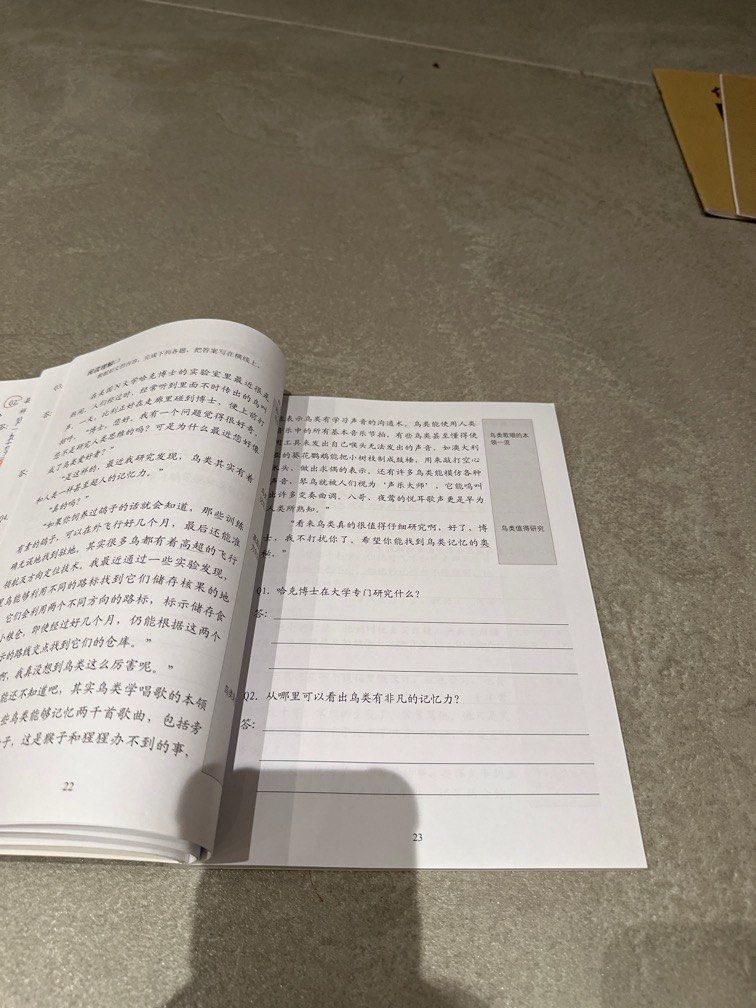 阅读理解
根据短文的内容，完成下列各题，把答案写在横线上。
在美国N大学哈克博士的实验室里最近很是
热闹，人们经过时，经常听到里面不时传出的鸟叫
声。一天，比利正好在走廊里碰到博士，便上前打
招呼，“博士，您好，我有一个问题觉得很好奇，
您不是研究人类思维的吗？可是为什么最近您好像
成了鸟类爱好者？”
“是这样的，最近我研究发现，鸟类其实有着
和人类一样甚至超人的记忆力。”
“真的吗？”
“如果你饲养过鸽子的话就会知道，那些训练
有素的鸽子，可以在外飞行好几个月，最后还能准
确无误地找到驻地，其实很多鸟都有着高超的飞行
领航及方向定位技术。我最近通过一些实验发现，
鸟能够利用不同的路标找到它们储存核果的地
它们会利用两个不同方向的路标，标示储存食
小粮仓，即使经过好几个月，仍能根据这两个
示的路线交点找到它们的仓库。”
啊，我真没想到鸟类这么厉害呢。”
能还不知道吧，其实鸟类学唱歌的本领
些鸟类能够记忆两千首歌曲，包括旁
子，这是猴子和猩猩办不到的事，
22
表示鸟类有学习声音的沟通术。鸟类能使用人类
音乐中的所有基本音乐节拍。有些鸟类甚至懂得使
用工具来发出自己喉头无法发出的声音。如澳大利
亚的葵花鹦鹉能把小树枝制成鼓槌，用来敲打空心
木头，做出求偶的表示。还有许多鸟类能模仿各种
声音，琴鸟就被人们视为‘声乐大师’，它能鸣叫
出许多变奏曲调。八哥、夜莺的悦耳歌声更是早为
人类所熟知。”
“看来鸟类真的很值得仔细研究啊，好了，博
士，我不打扰你了。希望你能找到鸟类记忆的奥
秘。”
鸟类歌唱的本
领一流
鸟类值得研究
Q1. 哈克博士在大学专门研究什么？
答：
Q2. 从哪里可以看出鸟类有非凡的记忆力？
答：
23